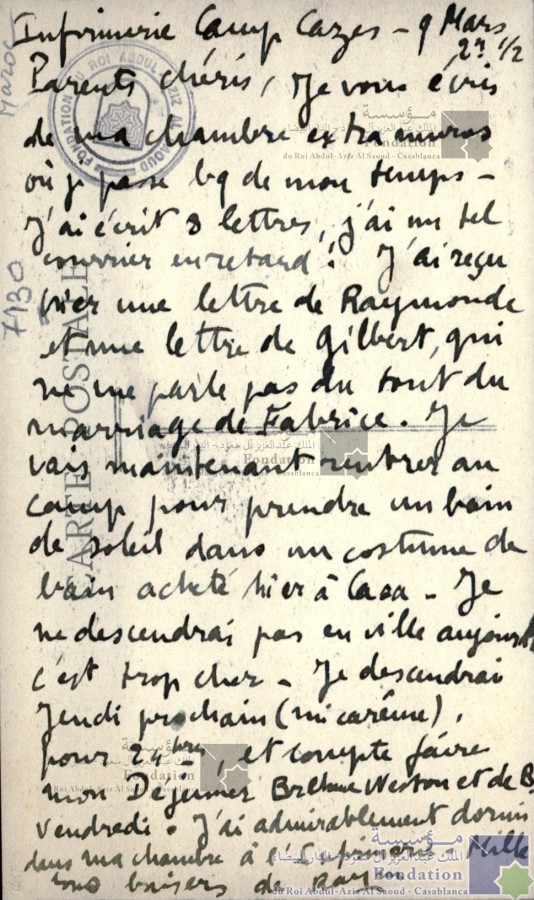 Infirmerie Camp Cazes - 9 Mars
2h 1/2
Parents chéris, Je vous écris
de ma chambre extra muros
où je passe bq de mon temps -
J'ai écrit 3 lettres, j'ai un tel
courrier en retard! J'ai reçu
hier une lettre de Raymonde
et une lettre de Gilbert, qui
ne me parle pas du tout du
marriage de Fabrice. Je
vais maintenant rentrer au
camp pour prendre un bain
de soleil dans un costume de
bain acheté hier à Casa - Je
ne descendrai pas en ville aujourd
c'est trop cher - Je descendrai
Jeudi prochain (mi carême),
pour 24 hres, et compte faire
mon Déjeuner Weston et de B
Vendredi. J'ai admirablement dormi
dans ma chambre à l'infirmerie - Mille
baisers de
Maroc
7130
CARTE POSTALE
FONDATION DU ROI ABDUL AZIZ AL SAOUD
مؤسسة
الملك عبد العزيز آل سعود - الدار البيضاء
Fondation
du Roi Abdul-Aziz Al Saoud - Casablanca
الملك عبد العزيز آل سعود - الدار البيضاء
Fondation
مؤسسة
Fondation
du Roi Abdul-Aziz Al Saoud - Casablanca
مؤسسة
الملك عبد العزيز آل سعود - الدار البيضاء
Fondation
du Roi Abdul-Aziz Al Saoud - Casablanca